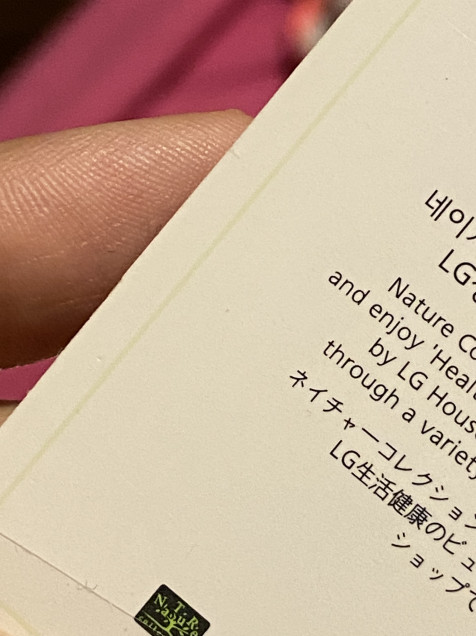 네이
LG
Nature Co
and enjoy 'Heal
by LG Hous
through a variety
ネイチャーコレクション
LG生活健康のビュ
ショップで
NaTuRe